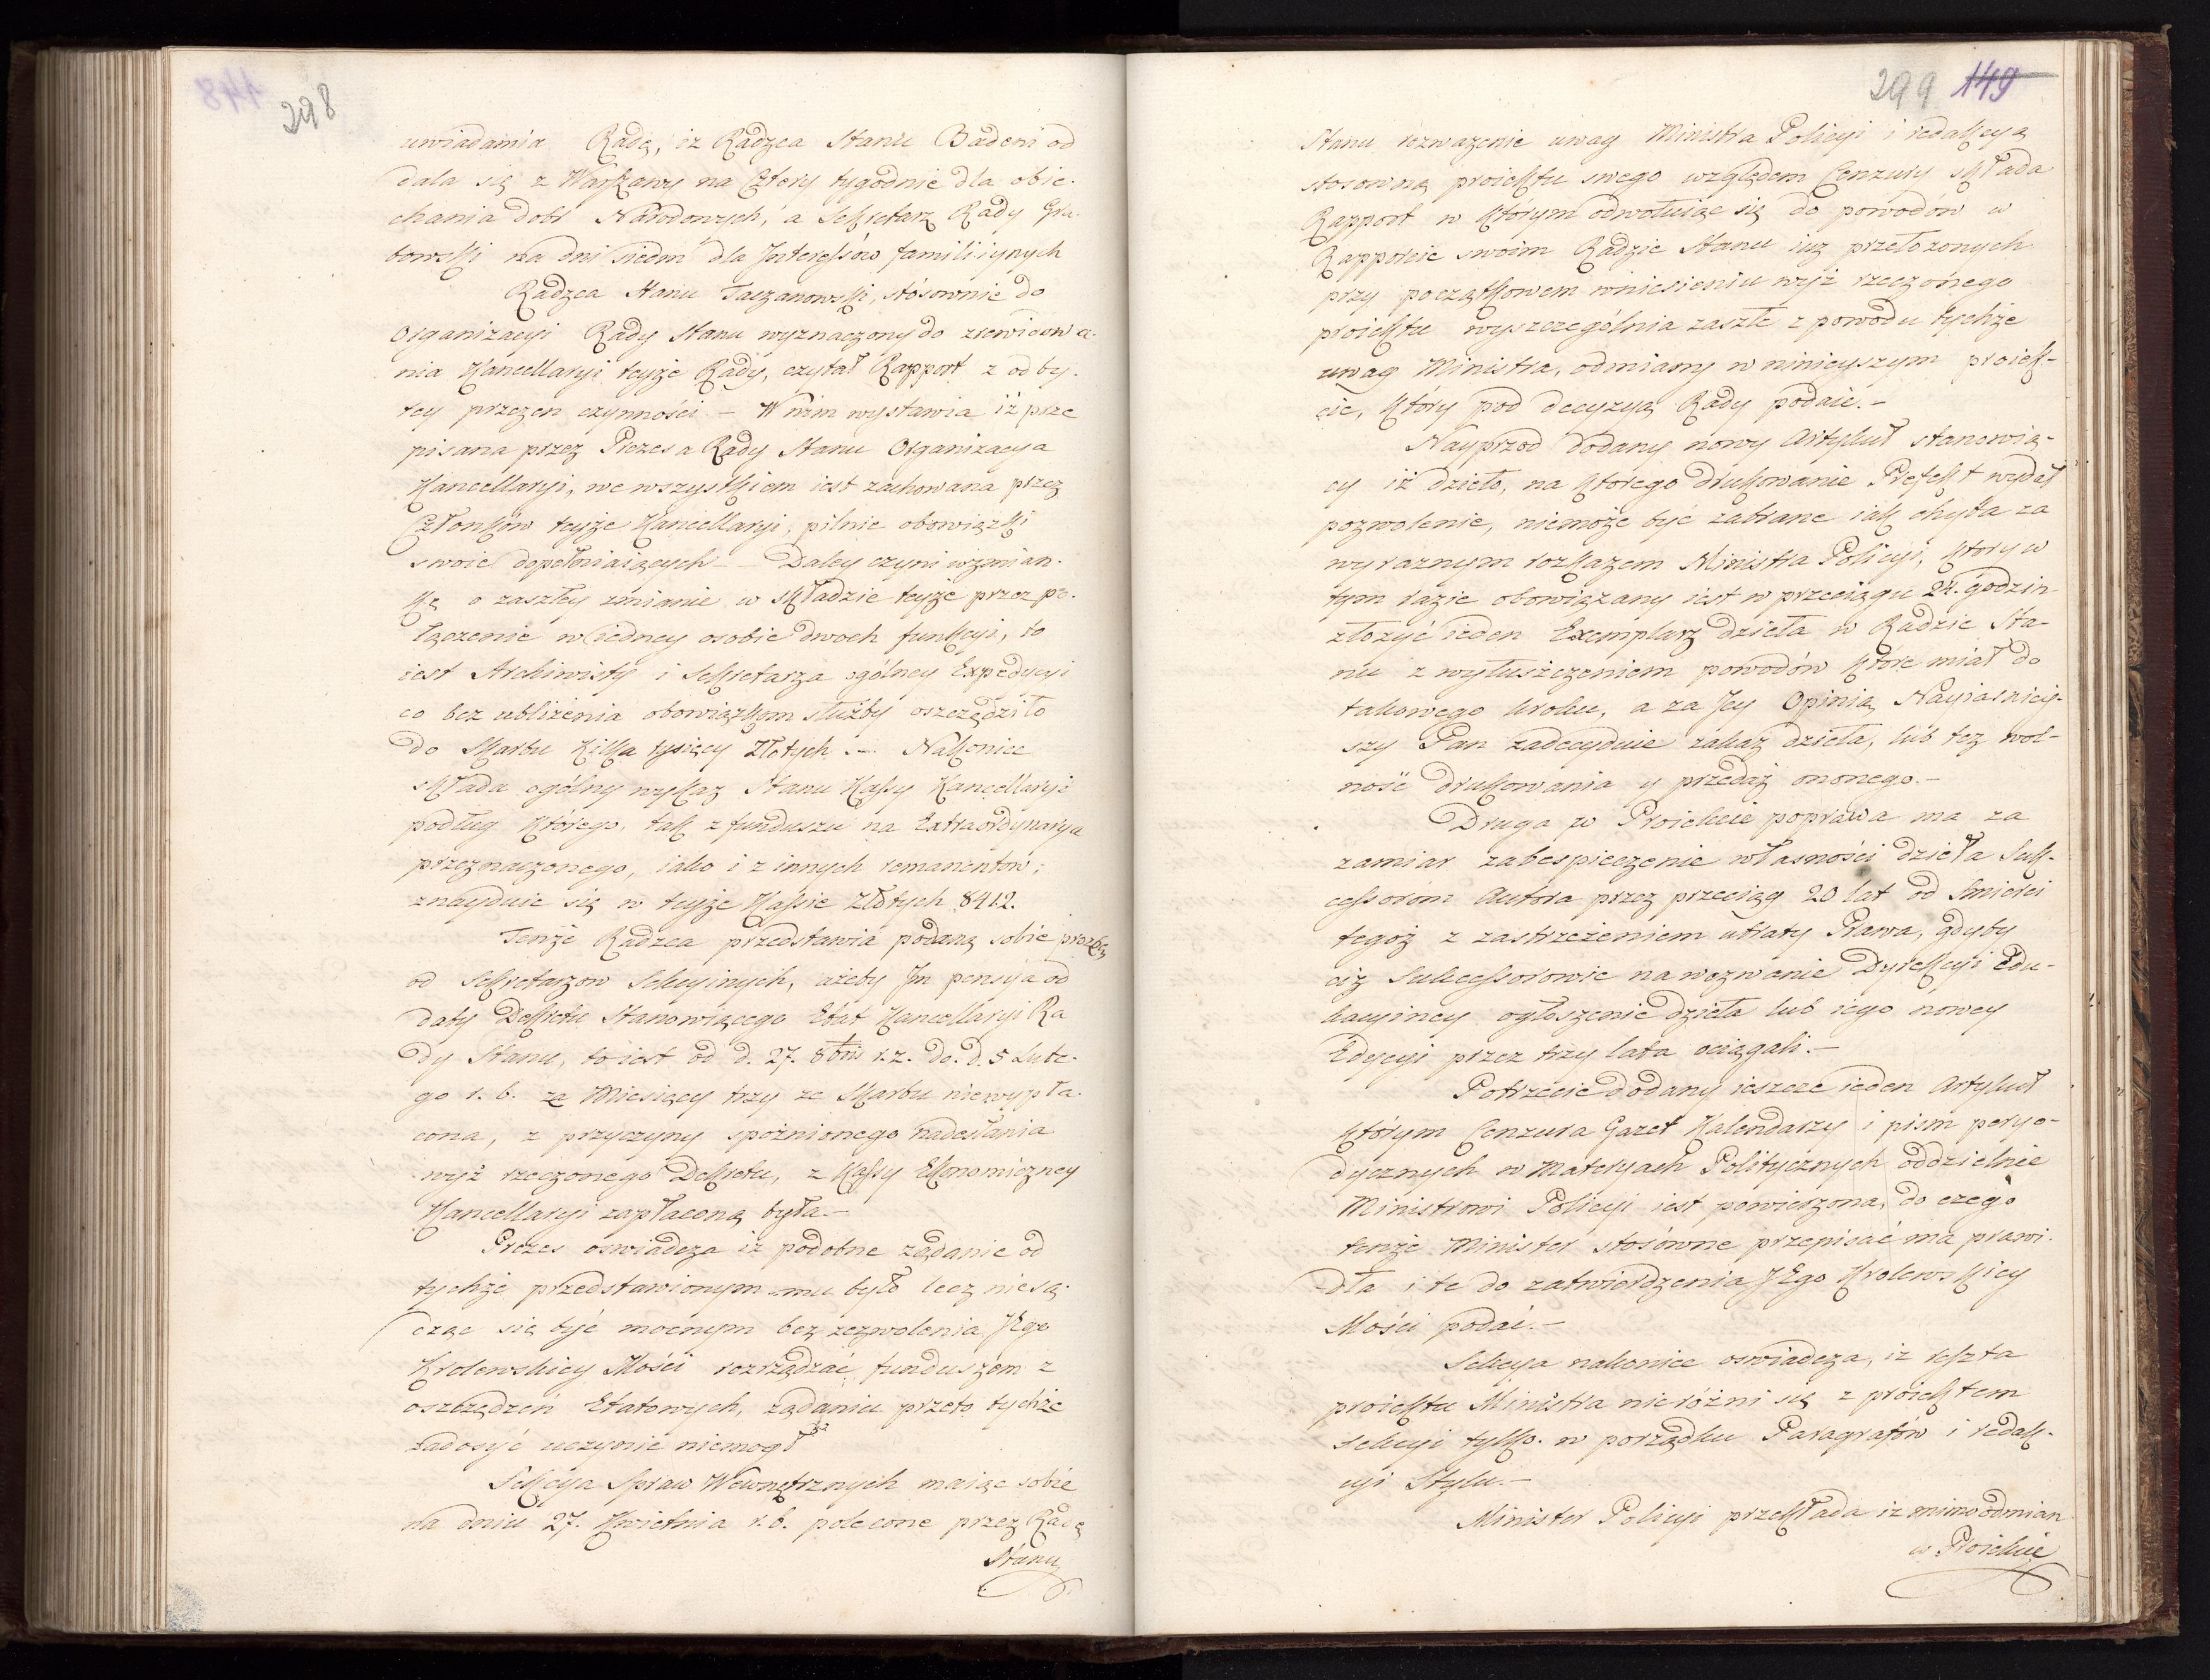 298
uwiadamia Radę, iz Radzca Stanu Badeni od
dala się z Warszawy na Cztery tygodnie dla obie-
chania dobr Narodowych, a Sekretarz Rady Gra-
bowski na dni siedm dla Interessów familiinych
Radzca Stanu Taczanowski, stósownie do
Organizacyi Rady Stanu wyznaczony do zrewidowa-
nia Kancellaryi teyże Rady, czytał Rapport z odby-
tey przezen czynności – W nim wystawia iż prze
pisana przez Prezesa Rady Stanu Organizacya
Kancellaryi, we wszystkiem iest zachowana przez
Członków teyże Kancellaryi, pilnie obowiązki
swoie dopełniaiących – Daley czyni wzmian-
kę o zaszłey zmianie w składzie teyże przez po-
łączenie w iedney osobie dwoch funkcyi, to
iest Archiwisty i Sekretarza ogólney Expedycyi
co bez ubliżenia obowiązkom służby oszczędziło
do Skarbu kilka tysięcy Złotych. – Nakoniec
składa ogólny wykaz Stanu Kassy Kancellaryi
podług którego, tak z funduszu na Extraordynarya
przeznaczonego, iako i z innych remanentow;
znayduie się w teyże Kassie Złotych 8412.
Tenże Radzca przedstawia podaną sobie prozbę
od Sekretarzow Sekcyinych, ażeby Im pensya od
daty Dekretu Stanowiącego Etat Kancellaryi Ra
dy Stanu, to iest od d. 27. 8bris r. z. do d. 5 Lute-
go r. b. za Miesięcy trzy ze Skarbu niewypła-
cona, z przyczyny spoznionego nadesłania
wyż rzeczonego Dekretu, z Kassy Ekonomiczney
Kancellaryi zapłaconą była. –
Prezes oswiadcza iz podobne ządanie od
tychże przedstawionym mu było lecz niesą-
dząc się być mocnym bez zezwolenia JEgo
Krolewskiey Mości rozrządzać funduszem z
oszczędzeń Etatowych, ządaniu przeto tychże
zadosyć uczynic niemogł
Sekcya Spraw Wewnętrznych maiąc sobie
na dniu 27. Kwietnia r. b. polecone przez Radę
Stanu
299 149
Stanu rozwazenie uwag Ministra Policyi i redakcyą
stosowną proiektu swego względem Cenzury składa
Rapport w którym odwołuiąc się do powodów w
Rapporcie swoim Radzie Stanu iuz przełozonych
przy początkowem wniesieniu wyż rzeczonego
proiektu wyszczególnia zaszłe z powodu tychże
uwag Ministra, odmiany w ninieyszym proiek-
cie, który pod decyzyą Rady podaie. –
Nayprzod dodany nowy Artykuł stanowią-
cy iż dzieło, na którego drukowanie Prefekt wydał
pozwolenie, niemoże być zabrane iak chyba za
wyraznym rozkazem Ministra Policyi, ktory w
tym razie obowiązany iest w przeciągu 24. godzin
złozyć ieden Exemplarz dzieła w Radzie Sta-
nu z wyłuszczeniem powodów które miał do
takowego kroku, a za Jey Opinią Nayiasniey-
szy Pan zadecyduie zakaz dzieła, lub tez wol-
ność drukowania y przedaż ononego. –
Druga w Proiekcie poprawa ma za
zamiar zabespieczenie własności dzieła Suk-
cessorom Autora przez przeciąg 20 lat od Smierci
tegoż z zastrzeżeniem utraty Prawa, gdyby
ciż Sukcessorowie na wezwanie Dyrekcyi Edu-
kacyiney ogłoszenie dzieła lub iego nowey
Edycyi przez trzy lata ociągali. –
Potrzecie dodany ieszcze ieden Artykuł
którym Cenzura Gazet Kalendarzy i pism peryo-
dycznych w Materyach Politycznych oddzielnie
Ministrowi Policyi iest powierzona, do czego
tenże Minister stosówne przepisać ma prawi-
dła i te do zatwierdzenia JEgo Krolewskiey
Mości podać. –
Sekcya nakoniec oswiadcza, iz reszta
proiektu Ministra nieróżni się z proiektem
Sekcyi tylko w porządku Paragrafów i redak-
cyi Stylu. –
Minister Policyi przekłada iz mimo odmian
w Proiekcie